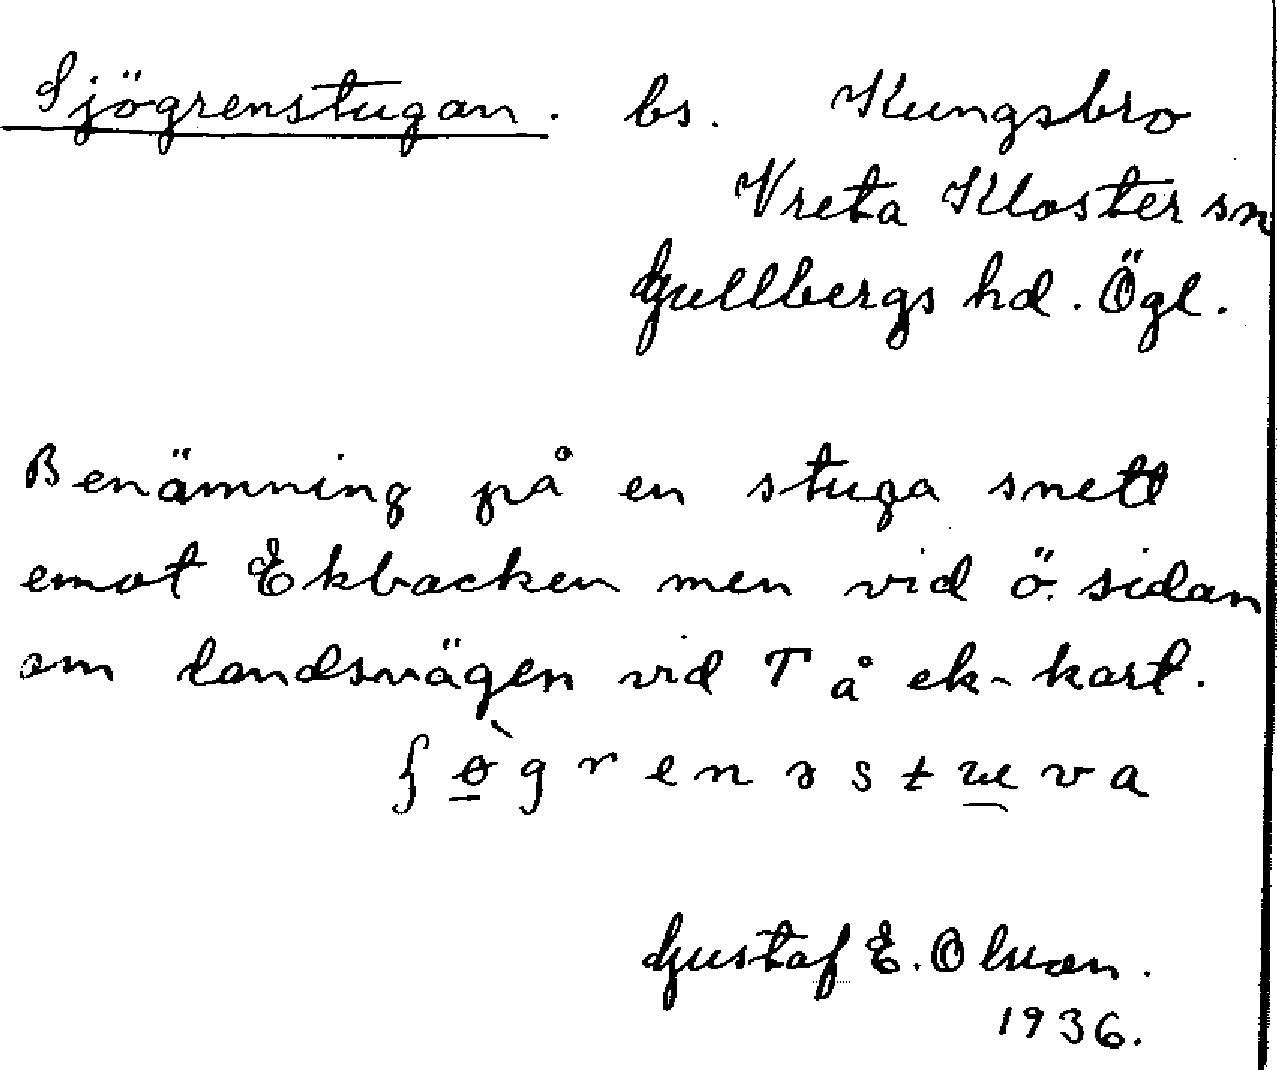 Sjögrenstugan. bs. Kungsbro
Vreta Kloster sn
Gullbergs hd. Ögl.
Benämning på en stuga snett
emot Ekbacken men vid ö. sidan
om landsvägen vid T å ek-kart.
ʃ ø̀ g r e n ə s t u v a
Gustaf E. Olson.
1936.